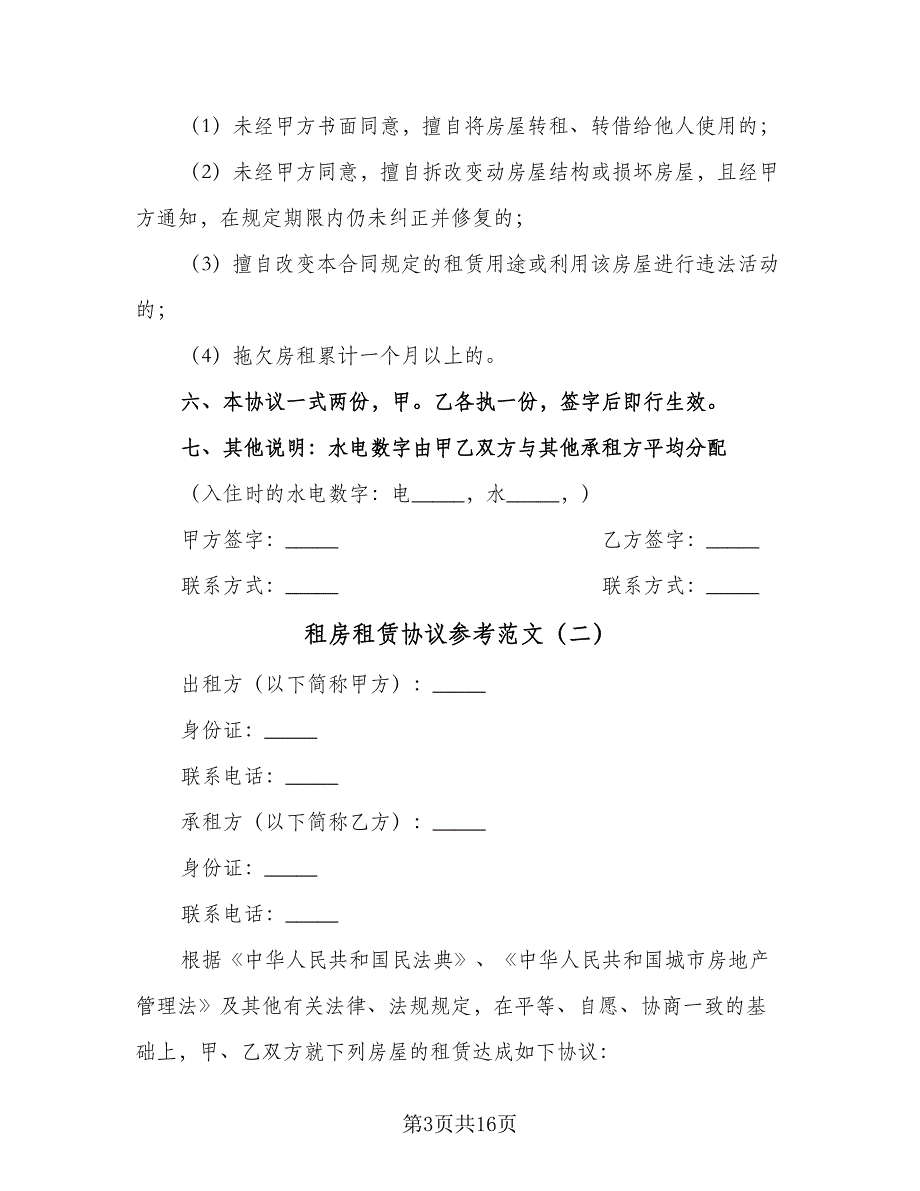 （1）未经甲方书面同意，擅自将房屋转租、转借给他人使用的；
（2）未经甲方同意，擅自拆改变动房屋结构或损坏房屋，且经甲
方通知，在规定期限内仍未纠正并修复的；
（3）擅自改变本合同规定的租赁用途或利用该房屋进行违法活动
的；
（4）拖欠房租累计一个月以上的。
六、本协议一式两份，甲。乙各执一份，签字后即行生效。
七、其他说明：水电数字由甲乙双方与其他承租方平均分配
（入住时的水电数字：电_____，水_____，）
甲方签字：_____ 乙方签字：_____
联系方式：_____ 联系方式：_____
租房租赁协议参考范文（二）
出租方（以下简称甲方）：_____
身份证：_____
联系电话：_____
承租方（以下简称乙方）：_____
身份证：_____
联系电话：_____
根据《中华人民共和国民法典》、《中华人民共和国城市房地产
管理法》及其他有关法律、法规规定，在平等、自愿、协商一致的基
础上，甲、乙双方就下列房屋的租赁达成如下协议：
第3页共16页